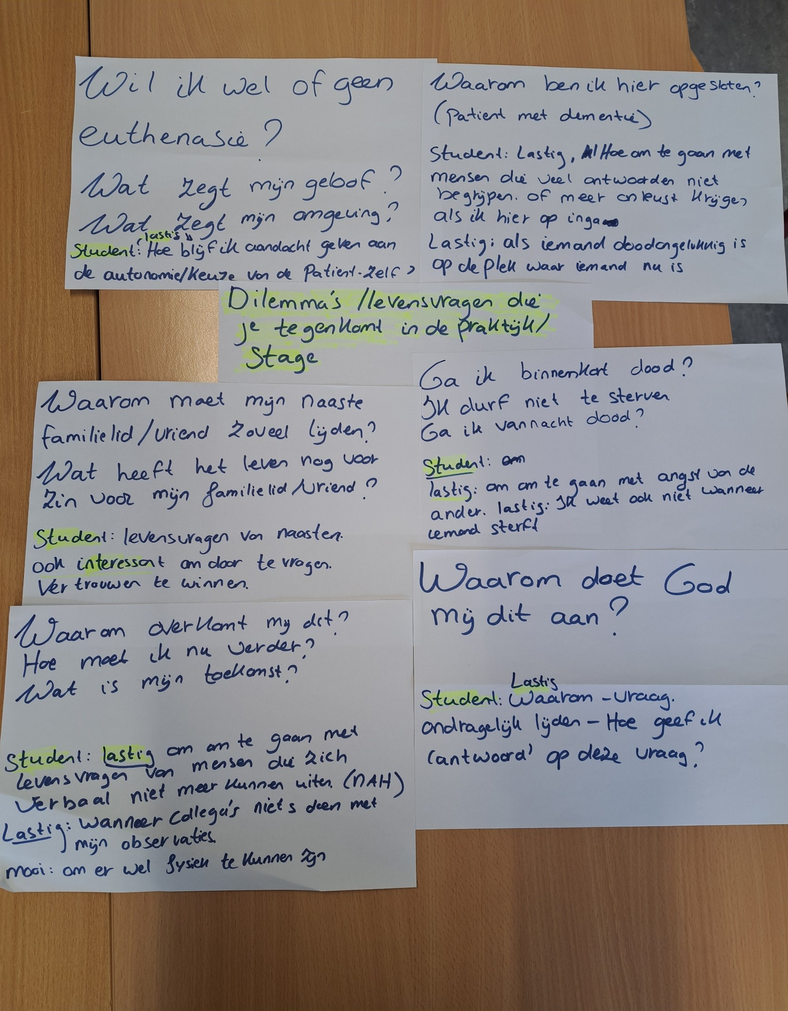 Wil ik wel of geen
euthenasie?
Wat zegt mijn geloof?
Wat zegt mijn omgeving?
Student: lastig Hoe blijf ik aandacht geven aan
de autonomie/keuze van de Patient-zelf?
Waarom ben ik hier opgesloten?
(patient met dementie)
Student: Lastig, Hoe om te gaan met
mensen die veel antwoorden niet
begrijpen. of meer onrust krijgen
als ik hier op inga
Lastig: als iemand doodongelukkig is
op de plek waar iemand nu is
Dilemma's /levensvragen die
je tegenkomt in de praktijk/
Stage
Waarom moet mijn naaste
familielid/vriend zoveel lijden?
Wat heeft het leven nog voor
zin voor mijn familielid/vriend?
Student: levensvragen van naasten.
ook interessant om door te vragen.
Vertrouwen te winnen.
Ga ik binnenkort dood?
Ik durf niet te sterven
Ga ik vannacht dood?
Student: om
lastig: om om te gaan met angst van de
ander. lastig: Ik weet ook niet wanneer
iemand sterft
Waarom overkomt mij dit?
Hoe moet ik nu verder?
Wat is mijn toekomst?
Student: lastig om om te gaan met
levensvragen van mensen die zich
verbaal niet meer kunnen uiten (NAH)
Lastig: wanneer Collega's niets doen met
mijn observaties
mooi: om er wel fysiek te kunnen zijn
Waarom doet God
mij dit aan?
Lastig
Student: Waarom-vraag.
ondragelijk lijden - Hoe geef ik
'antwoord' op deze vraag?